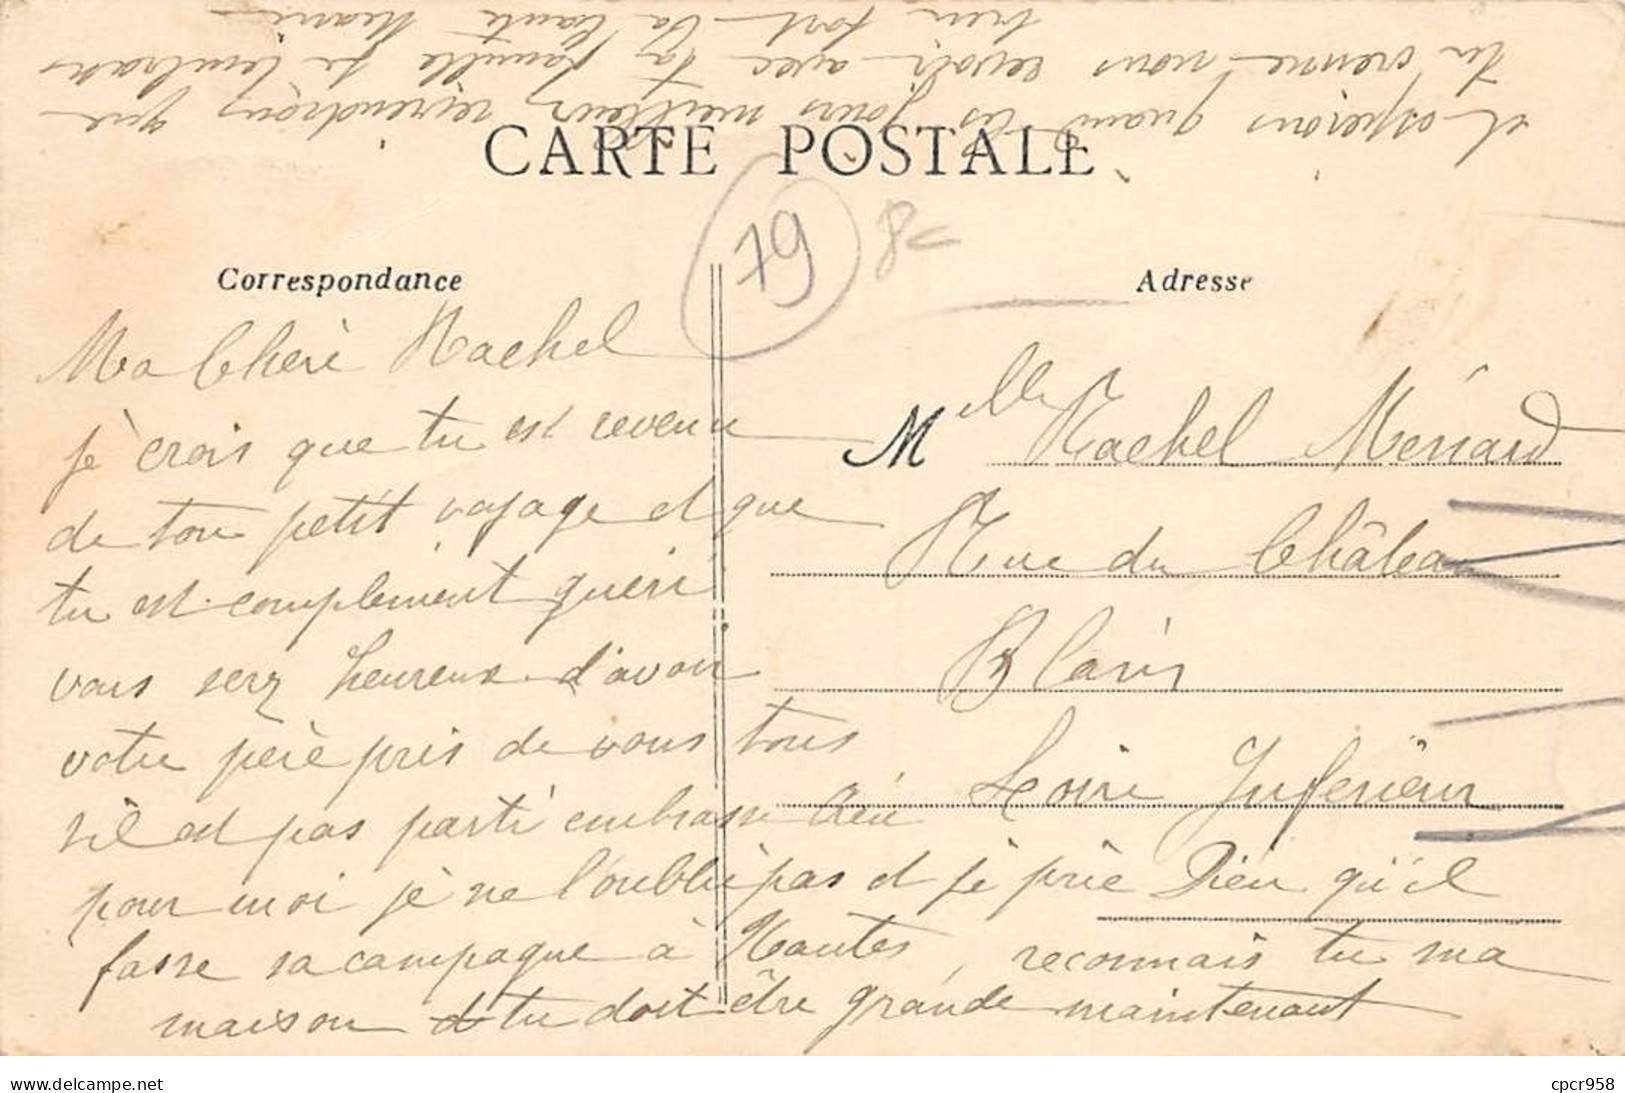 CARTE POSTALE
79
8
Correspondance
Adresse
Ma Chère Rachel
je crois que tu est revenu
de ton petit voyage et que
tu est complement guéri
vous serz heureux d'avoir
votre père pris de vous tous
s'il est pas parti embrasse
pour moi je ne l'oublie pas et je prie Dieu qu'il
fasse sa campagne à Nantes, reconnais tu ma
maison et tu doit être grande maintenant
et espérons quand ces jours meilleur reviendrons que
tu vienne nous revoir avec ta famille je t'embrass
bien fort Ta tante
Melle Rachel Ménard
Rue du Château
Blain
Loire Inférieur
www.delcampe.net
cpcr958